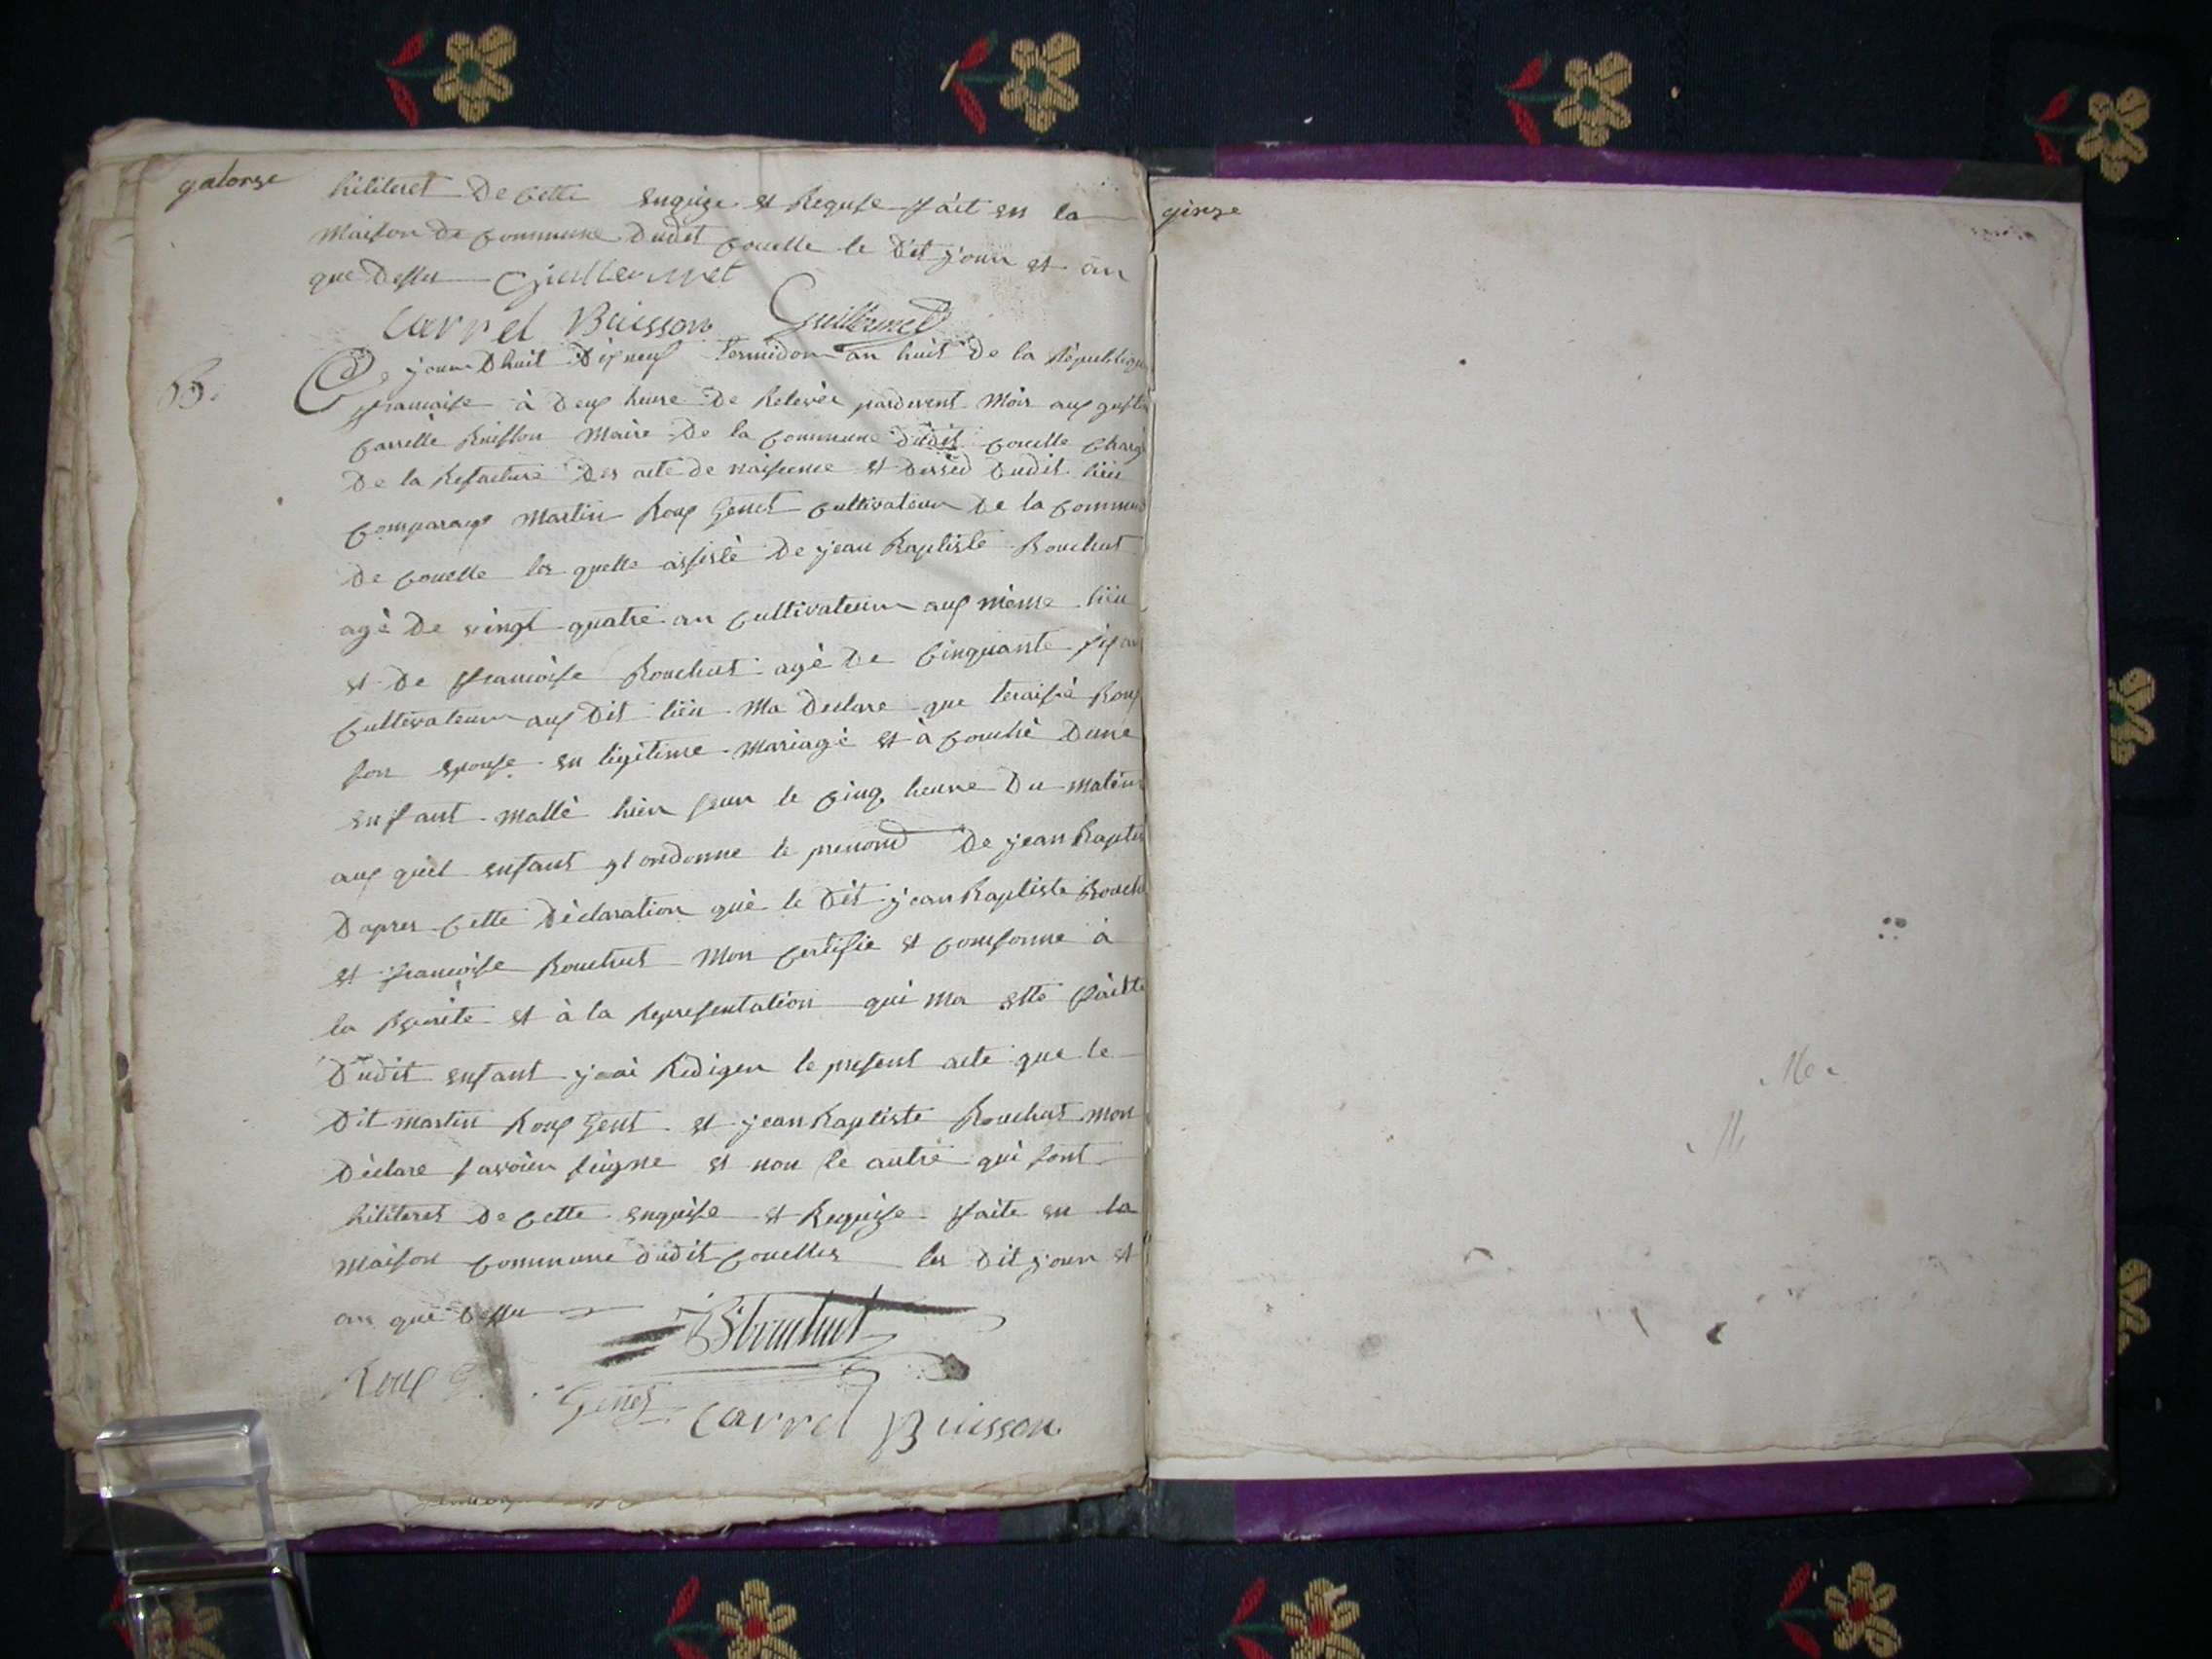 gatorze
hiliteret De cette enquize et Requise fait en la
Maison de commune Dudit Couelle le Dit jour et an
que Dessu Guillermet
Carrel Buisson Guillermet
B.
Ce jour Dhuit Dixneuf Termidor an huit De la Républiqu
francoise à Deux heure De Relevée pardevent Moir aux gusti
Carrelle Buisson Maire De la Commune Dudit Couelle Charg
De la Refacture Des acte de naisence et Dessed Dudit lieu
Comparays Martin Roux Genet Cultivateur De la Commun
De Couelle les quelle assisté De jean Baptiste Bouchut
agé De vingt quatre an Cultivateur aux même lieu
et De francoise Bouchut agé De Cinquante six an
Cultivateur aux Dit lieu Ma Declare que teraise Roux
son epouse en legitime Mariage et à Couché Dune
enfant Malle hier seur le Cinq heure Du Mateur
aux quel enfant yl ondonne le prenond De jean Baptis
Dapres Cette Déclaration qué le Dit jean Baptiste Bouch
et francoise Bouchut Mon Certifie et Comforme à
la et à la Representation qui Ma ette faitte
Dudit enfant jeai Rediger le present acte que le
Dit Martin Roux Gent et jean Baptiste Bouchut Mon
Déclare savoir seigne et non le autre qui sont
hiliteret De Cette enquise et Requise faite en la
Maison Commune Dudit Couelles les Dit jour et
an qué Dessu
JBbouchut
Roux G Genet Carrel Buisson
qinze